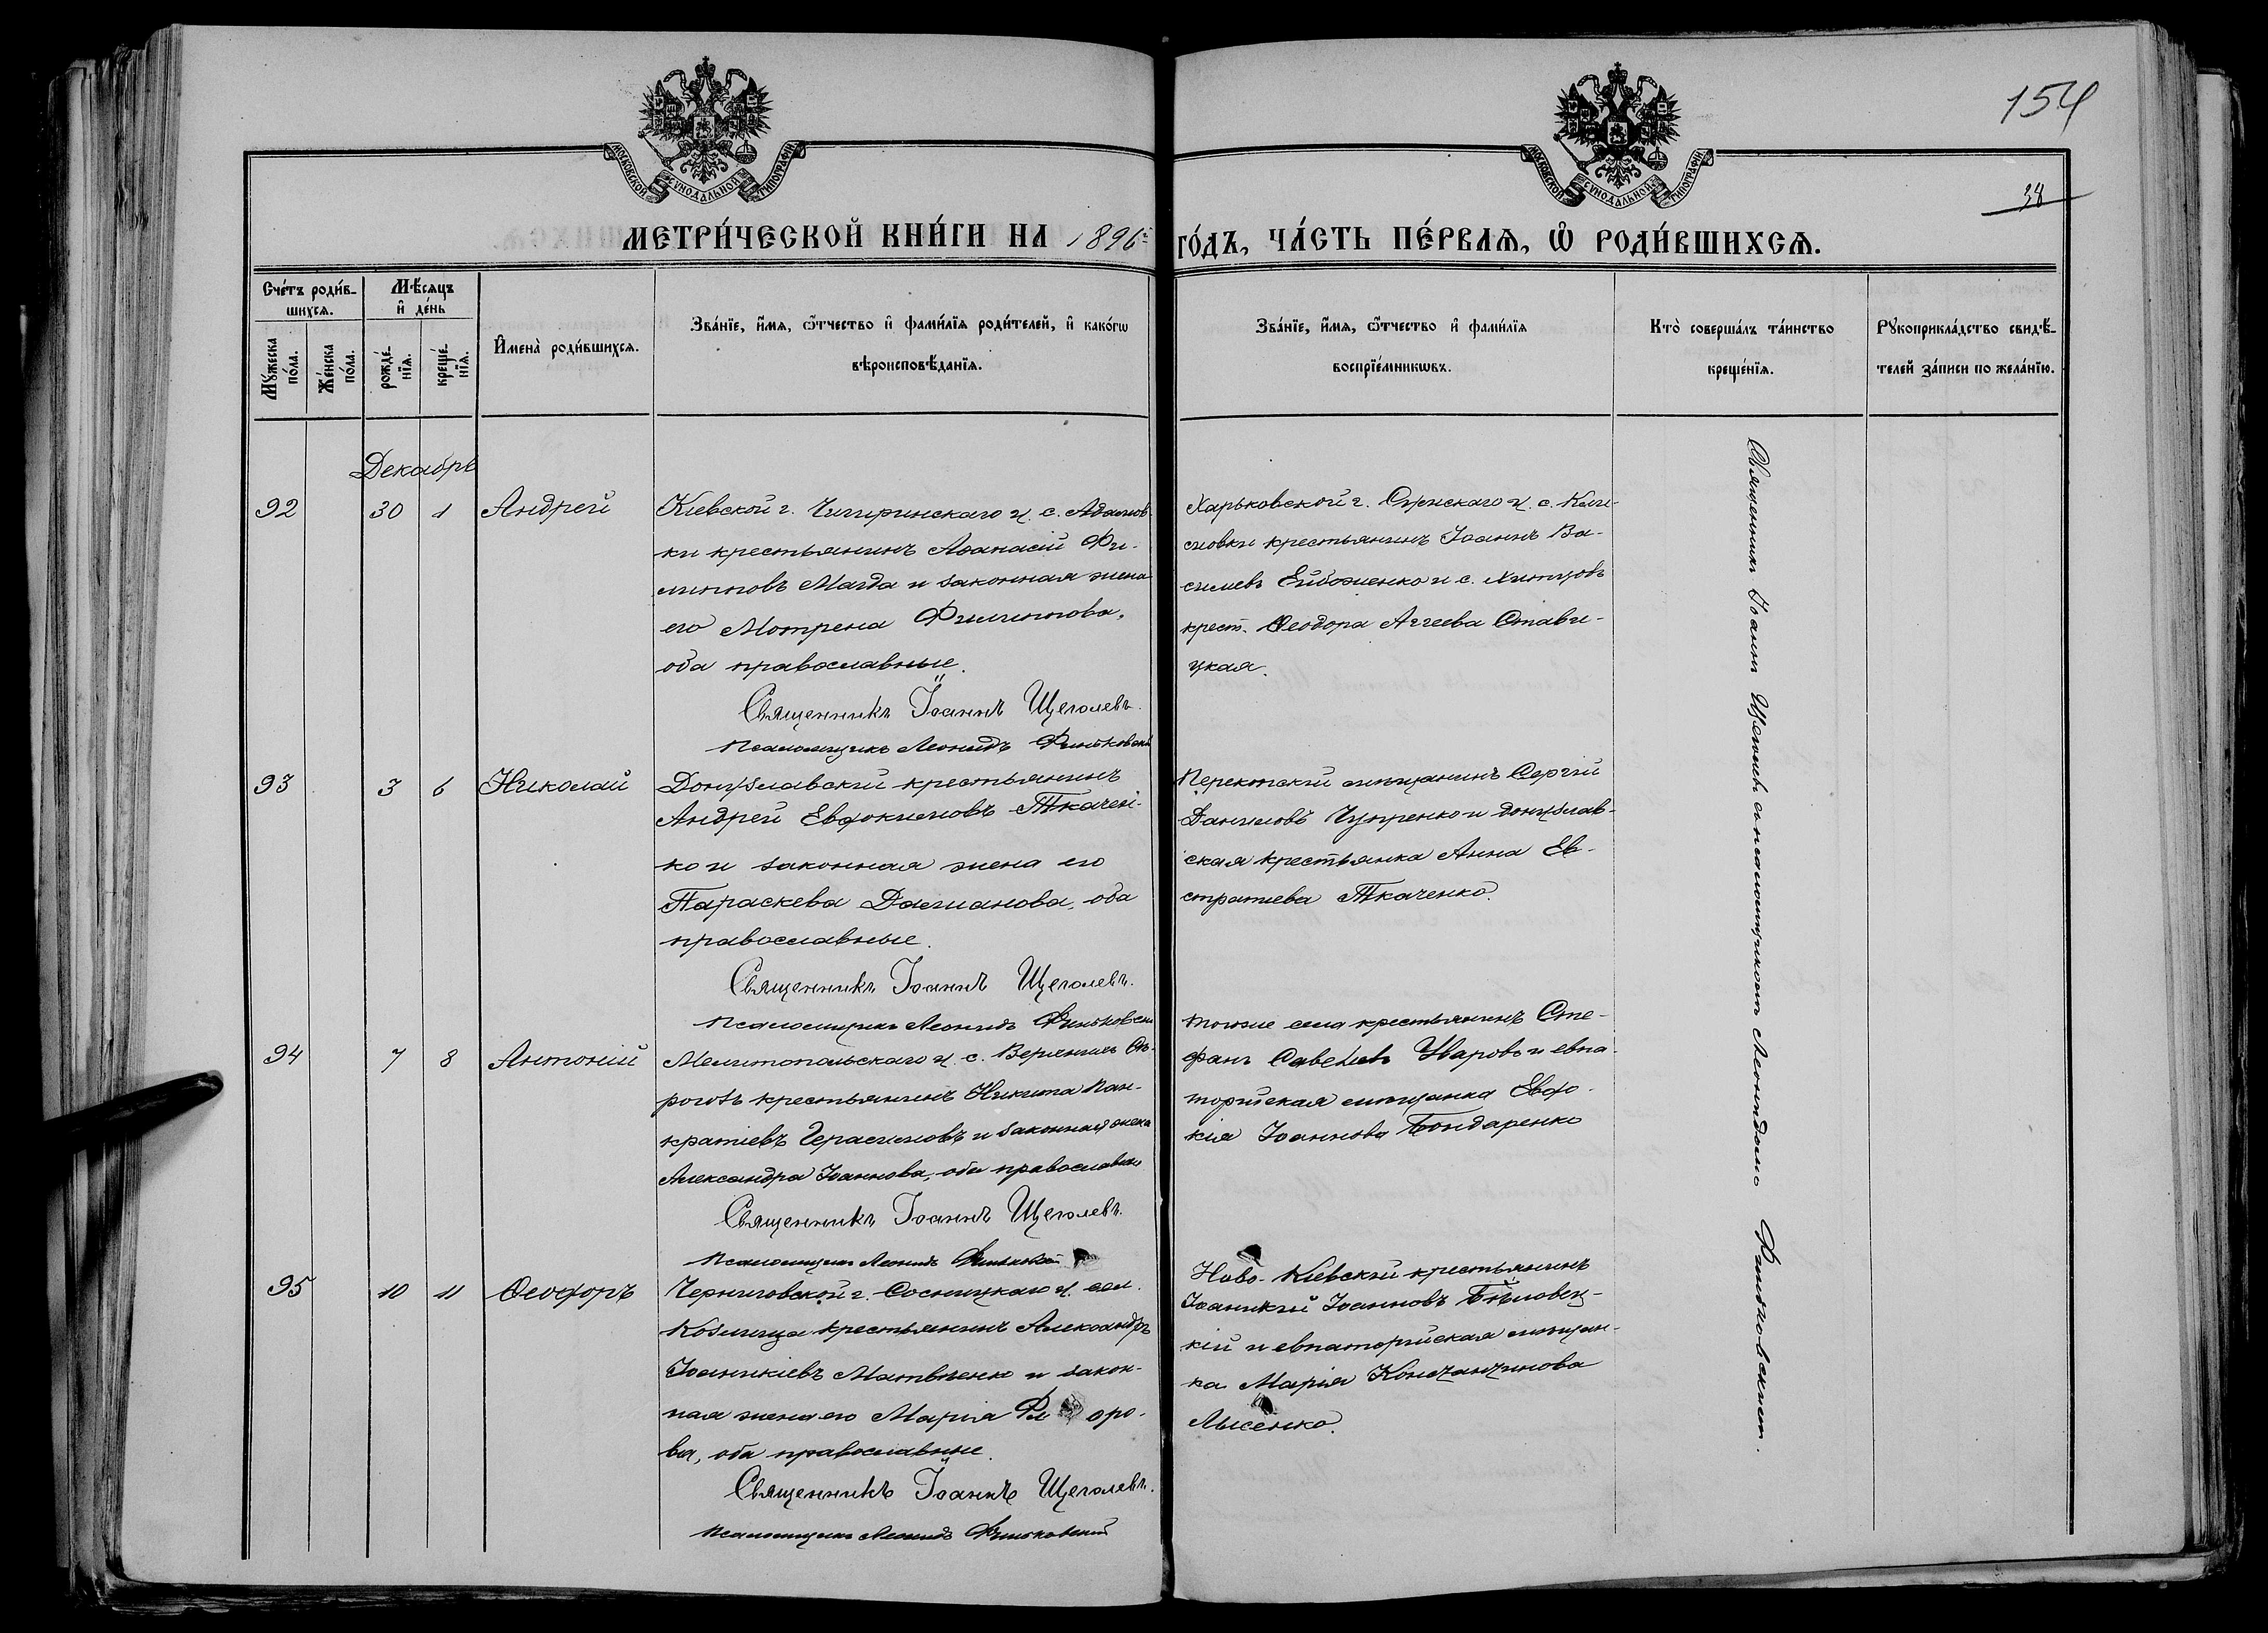 154
38
МОСКОВСКОЙ СѴНОДАЛЬНОЙ ТИПОГРАФІИ
МОСКОВСКОЙ СѴНОДАЛЬНОЙ ТИПОГРАФІИ
МЕТРИ́ЧЕСКОЙ КНИ́ГИ НА 1896 ГО́ДЪ, ЧА́СТЬ ПЕ́РВАѦ, Ѡ РОДИ́ВШИХСѦ.
Сче́тъ роди́в-
шихсѧ.
Мѣ́сѧцъ
и҆ де́нь
Мꙋ́жеска
по́ла.
Же́нска
по́ла.
рожде́-
нїѧ.
креще́-
нїѧ.
И҆мена̀ роди́вшихсѧ.
Зва́нїе, и҆́мѧ, ѻ҆́тчество и҆ фами́лїѧ роди́телей, и҆ како́гѡ
вѣроисповѣ́данїѧ.
Зва́нїе, и҆́мѧ, ѻ҆́тчество и҆ фами́лїѧ
воспрїе́мникѡвъ.
Кто̀ соверша́лъ та́инство
креще́нїѧ.
Рꙋкоприкла́дство свидѣ́-
телей за́писи по жела́нїю.
Декабрь
92 30 1 Андрей
Кіевской г. Чигиринскаго у. с. Адамов-
ки крестьянинъ Аѳанасій Фи-
липповъ Магда и законная жена
его Мотрена Филиппова,
оба православные.
Священникъ Іоаннъ Щеголевъ.
Псаломщикъ Леонидъ
Харьковской г. с.
крестьянинъ Іоаннъ Ва-
сильевъ и с.
крест. Ѳеодора Аггеева Стави-
цкая.
93 3 6 Николай
Донузлавскій крестьянинъ
Андрей Евдокимовъ Ткачен-
ко и законная жена его
Параскева Даміанова, оба
православные.
Священникъ Іоаннъ Щеголевъ.
Псаломщикъ Леонидъ
Перекопскій мѣщанинъ Сергій
Даниловъ Чупренко и донузлав-
ская крестьянка Анна Ев-
стратіева Ткаченко.
94 7 8 Антоній
Мелитопольскаго у. с. Верхнихъ Сѣ-
рогозъ крестьянинъ Никита Пан-
кратіевъ Герасимовъ и законная жена
Александра Іоаннова, оба православные
Священникъ Іоаннъ Щеголевъ.
Псаломщикъ Леонидъ
тогоже села крестьянинъ Сте-
фанъ Савельевъ Уваровъ и евпа-
торійская мѣщанка Евдо-
кія Іоаннова Бондаренко
95 10 11 Ѳеофоръ
Черниговской г. Сосницкаго у. сел.
Козлица крестьянинъ Александръ
Іоанникіевъ Матвѣенко и закон-
ная жена его Марія
ва, оба православные.
Священникъ Іоаннъ Щеголевъ.
Псаломщикъ Леонидъ
Ново-Кіевскій крестьянинъ
Іоанникій Іоанновъ Бѣловец-
кій и евпаторійская мѣщан-
ка Марія Константинова
Лысенко.
Священникъ Іоаннъ Щеголевъ съ псаломщикомъ Леонидомъ